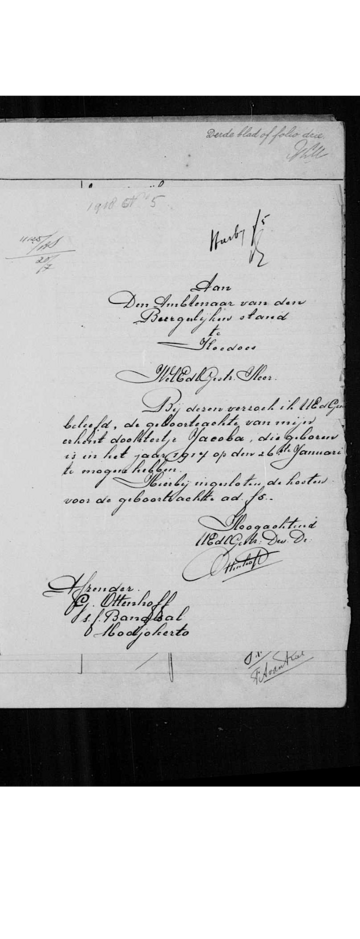 Derde blad of folio drie
1918 N° 5
Hierbij f5
4125/198
20/17
Aan
Den Ambtenaar van den
Burgerlijken stand
te
Hoedoes
WelEdGestr. Heer.
Bij dezen verzoek ik UEdGestr
beleefd, de geboorteachte van mijn
erkent dochtertje Jacoba, die geboren
is in het jaar 1917 op den 26ste Januari
te mogen hebben.
Hierbij ingesloten de kosten
voor de geboorteachte ad f5.-
Hoogachtend
UEdGestr. Dw. Dr.
Ottenhoff
Afzender.
G. Ottenhoff
s/f. Bangsal
Modjokerto